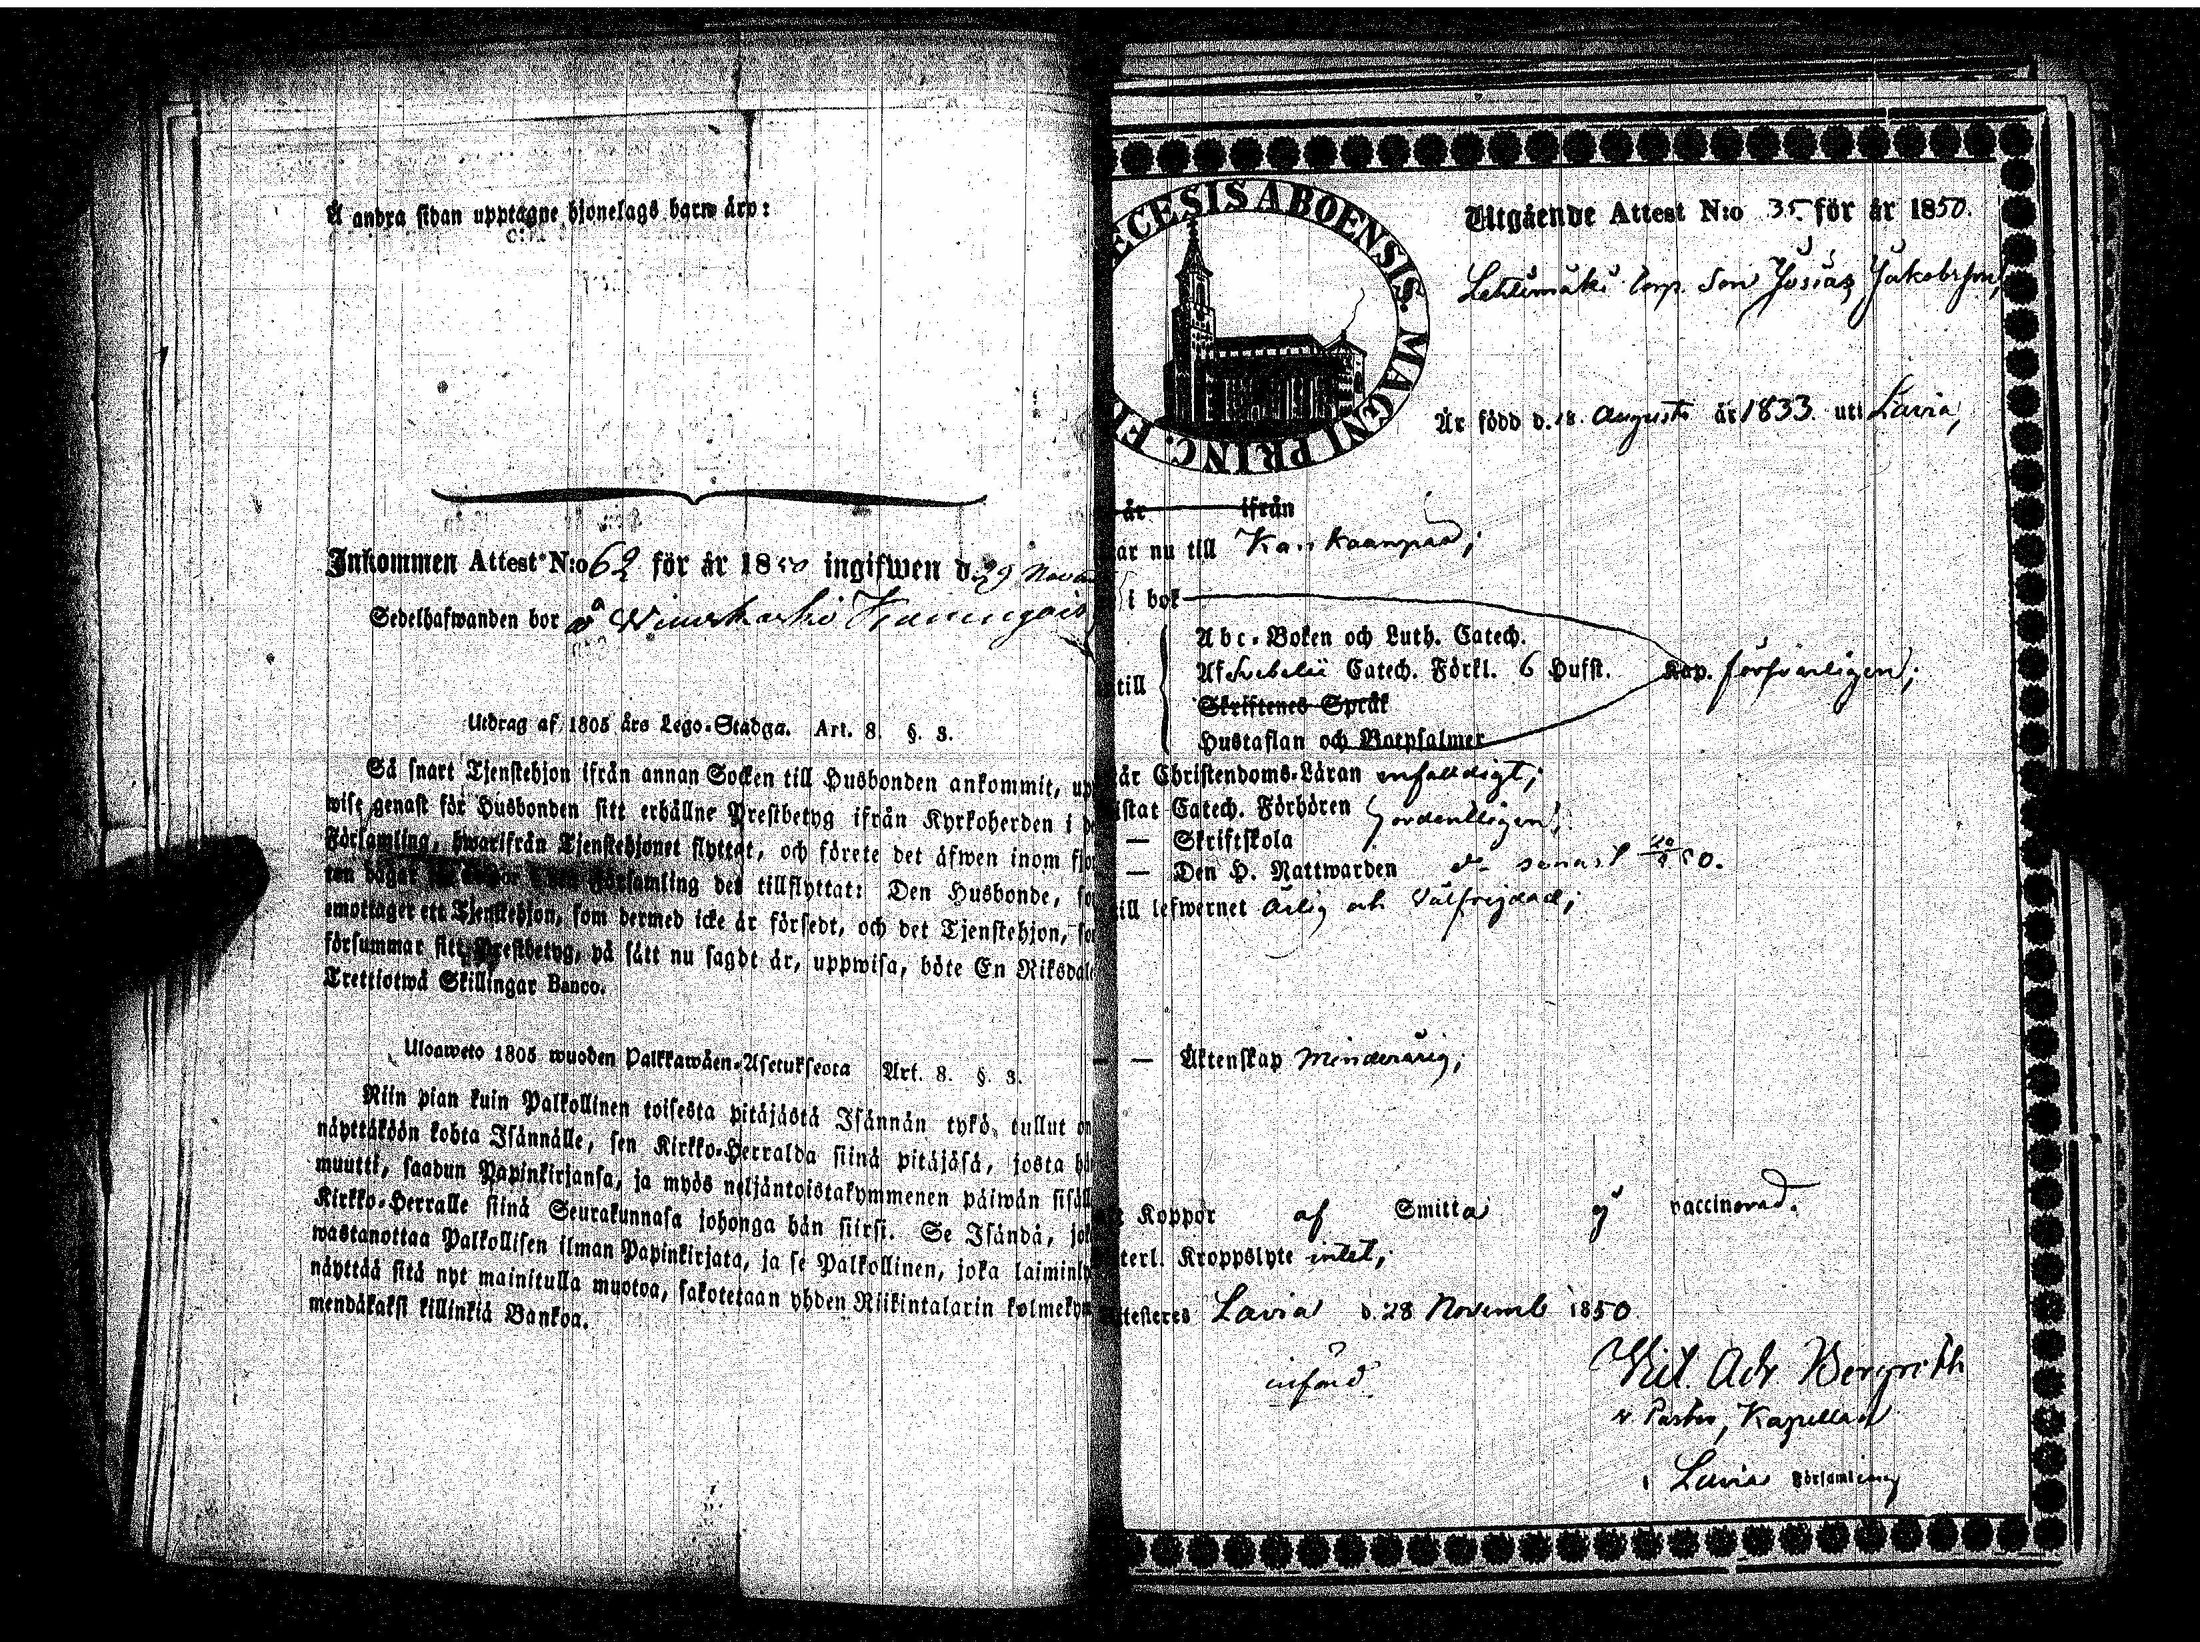 Å andra sidan upptagne hjonelags barn äro:
Inkommen Attest N:o 62 för år 1850 ingifwen d. 29 Novem
Sedelhafwanden bor å
Utdrag af 1805 års Lego-Stadga. Art. 8. §. 3.
Så snart Tjenstehjon ifrån annan Socken till Husbonden ankommit, upp
wise genast för Husbonden sitt erhållne Prestbetyg ifrån Kyrkoherden i de
Församling, hwarifrån Tjenstehjonet flyttat, och förete det äfwen inom fjor
ton dagar Församling det tillflyttat: Den Husbonde, so
emottager ett Tjenstehjon, som dermed icke är försedt, och det Tjenstehjon, so
försummar sitt Prestbetyg, på sätt nu sagdt är, uppwisa, böte En Riksdale
Trettiotwå Skillingar Banco.
Ulosweto 1805 wuoden Palkkawäen-Asetuksesta Art. 8. §. 3.
Niin pian kuin Palkollinen toisesta pitäjästä Isännän tykö, tullut on
näyttäköön kohta Isännälle, sen Kirkko-Herralda siinä pitäjäsä, josta hän
muutti, saadun Papinkirjansa, ja myös neljäntoistakymmenen päiwän sisäll
Kirkko-Herralle siinä Seurakunnasa johonga hän siirsi. Se Isändä, jok
wastanottaa Palkollisen ilman Papinkirjata, ja se Palkollinen, joka laiminly
näyttää sitä nyt mainitulla muotoa, sakotetaan yhden Riikintalarin kolmekym
mendäkaksi killinkiä Bankoa.
ECESIS ABOENSIS. MAGNI PRINC. FI
Utgående Attest N:o 35 för år 1850.
Lehtimäki torp. Son Josias Jakobsson,
Är född d. 18. Augusti år 1833. uti Lavia,
är ifrån
ar nu till Kankaanpää;
i bok
till
Abc-Boken och Luth. Catech.
Af Svebelii Catech. Förkl. 6 Hufst. Kap. försvarligen;
Skriftenes Språk
Hustaflan och Botpsalmer
år Christendoms-Läran enfaldigt;
istat Catech. Förhören ordentligen;
— Skriftskola
— Den H. Nattwarden senast 50.
till lefwernet ärlig och välfrejdad;
— — Äktenskap Minderårig;
Koppor af Smitta ej vaccinerad.
terl. Kroppslyte intet,
ttesteres Lavia d. 28 Novemb 1850
införd.
Vict. Adr Bergroth
v Pastor, Kapellan
i Lavia Församling